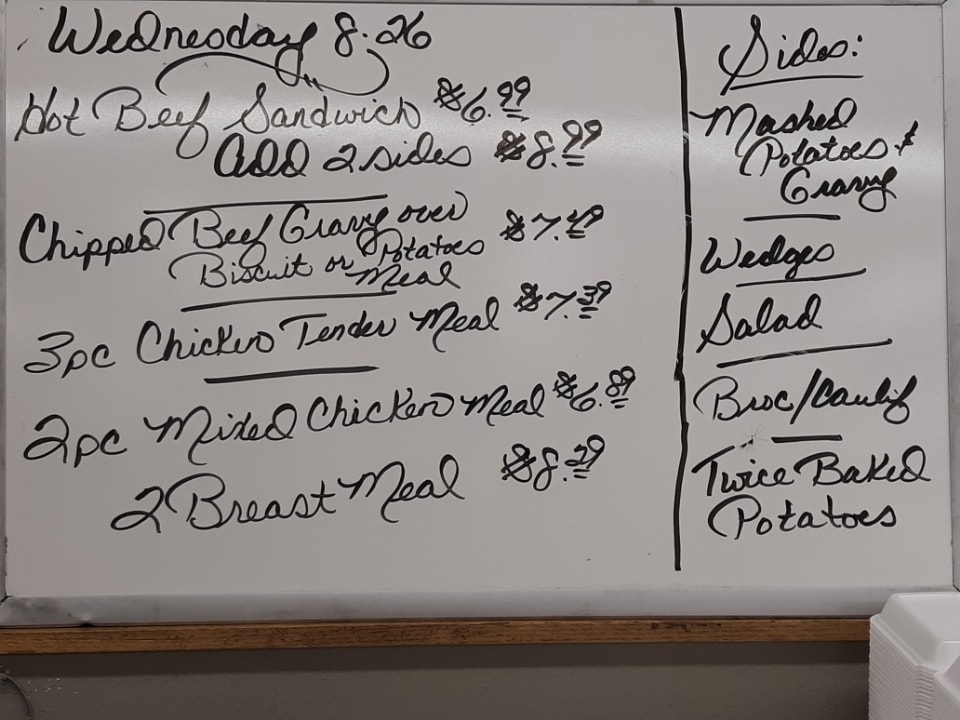 Wednesday 8.26
Hot Beef Sandwich $6.99
add 2 sides $8.99
Chipped Beef Gravy over
Biscuit or Potatoes $7.49
Meal
3pc Chicken Tender Meal $7.39
2pc Mixed Chicken Meal $6.89
2 Breast Meal $8.29
Sides:
Mashed
Potatoes &
Gravy
Wedges
Salad
Broc/Caulif
Twice Baked
Potatoes